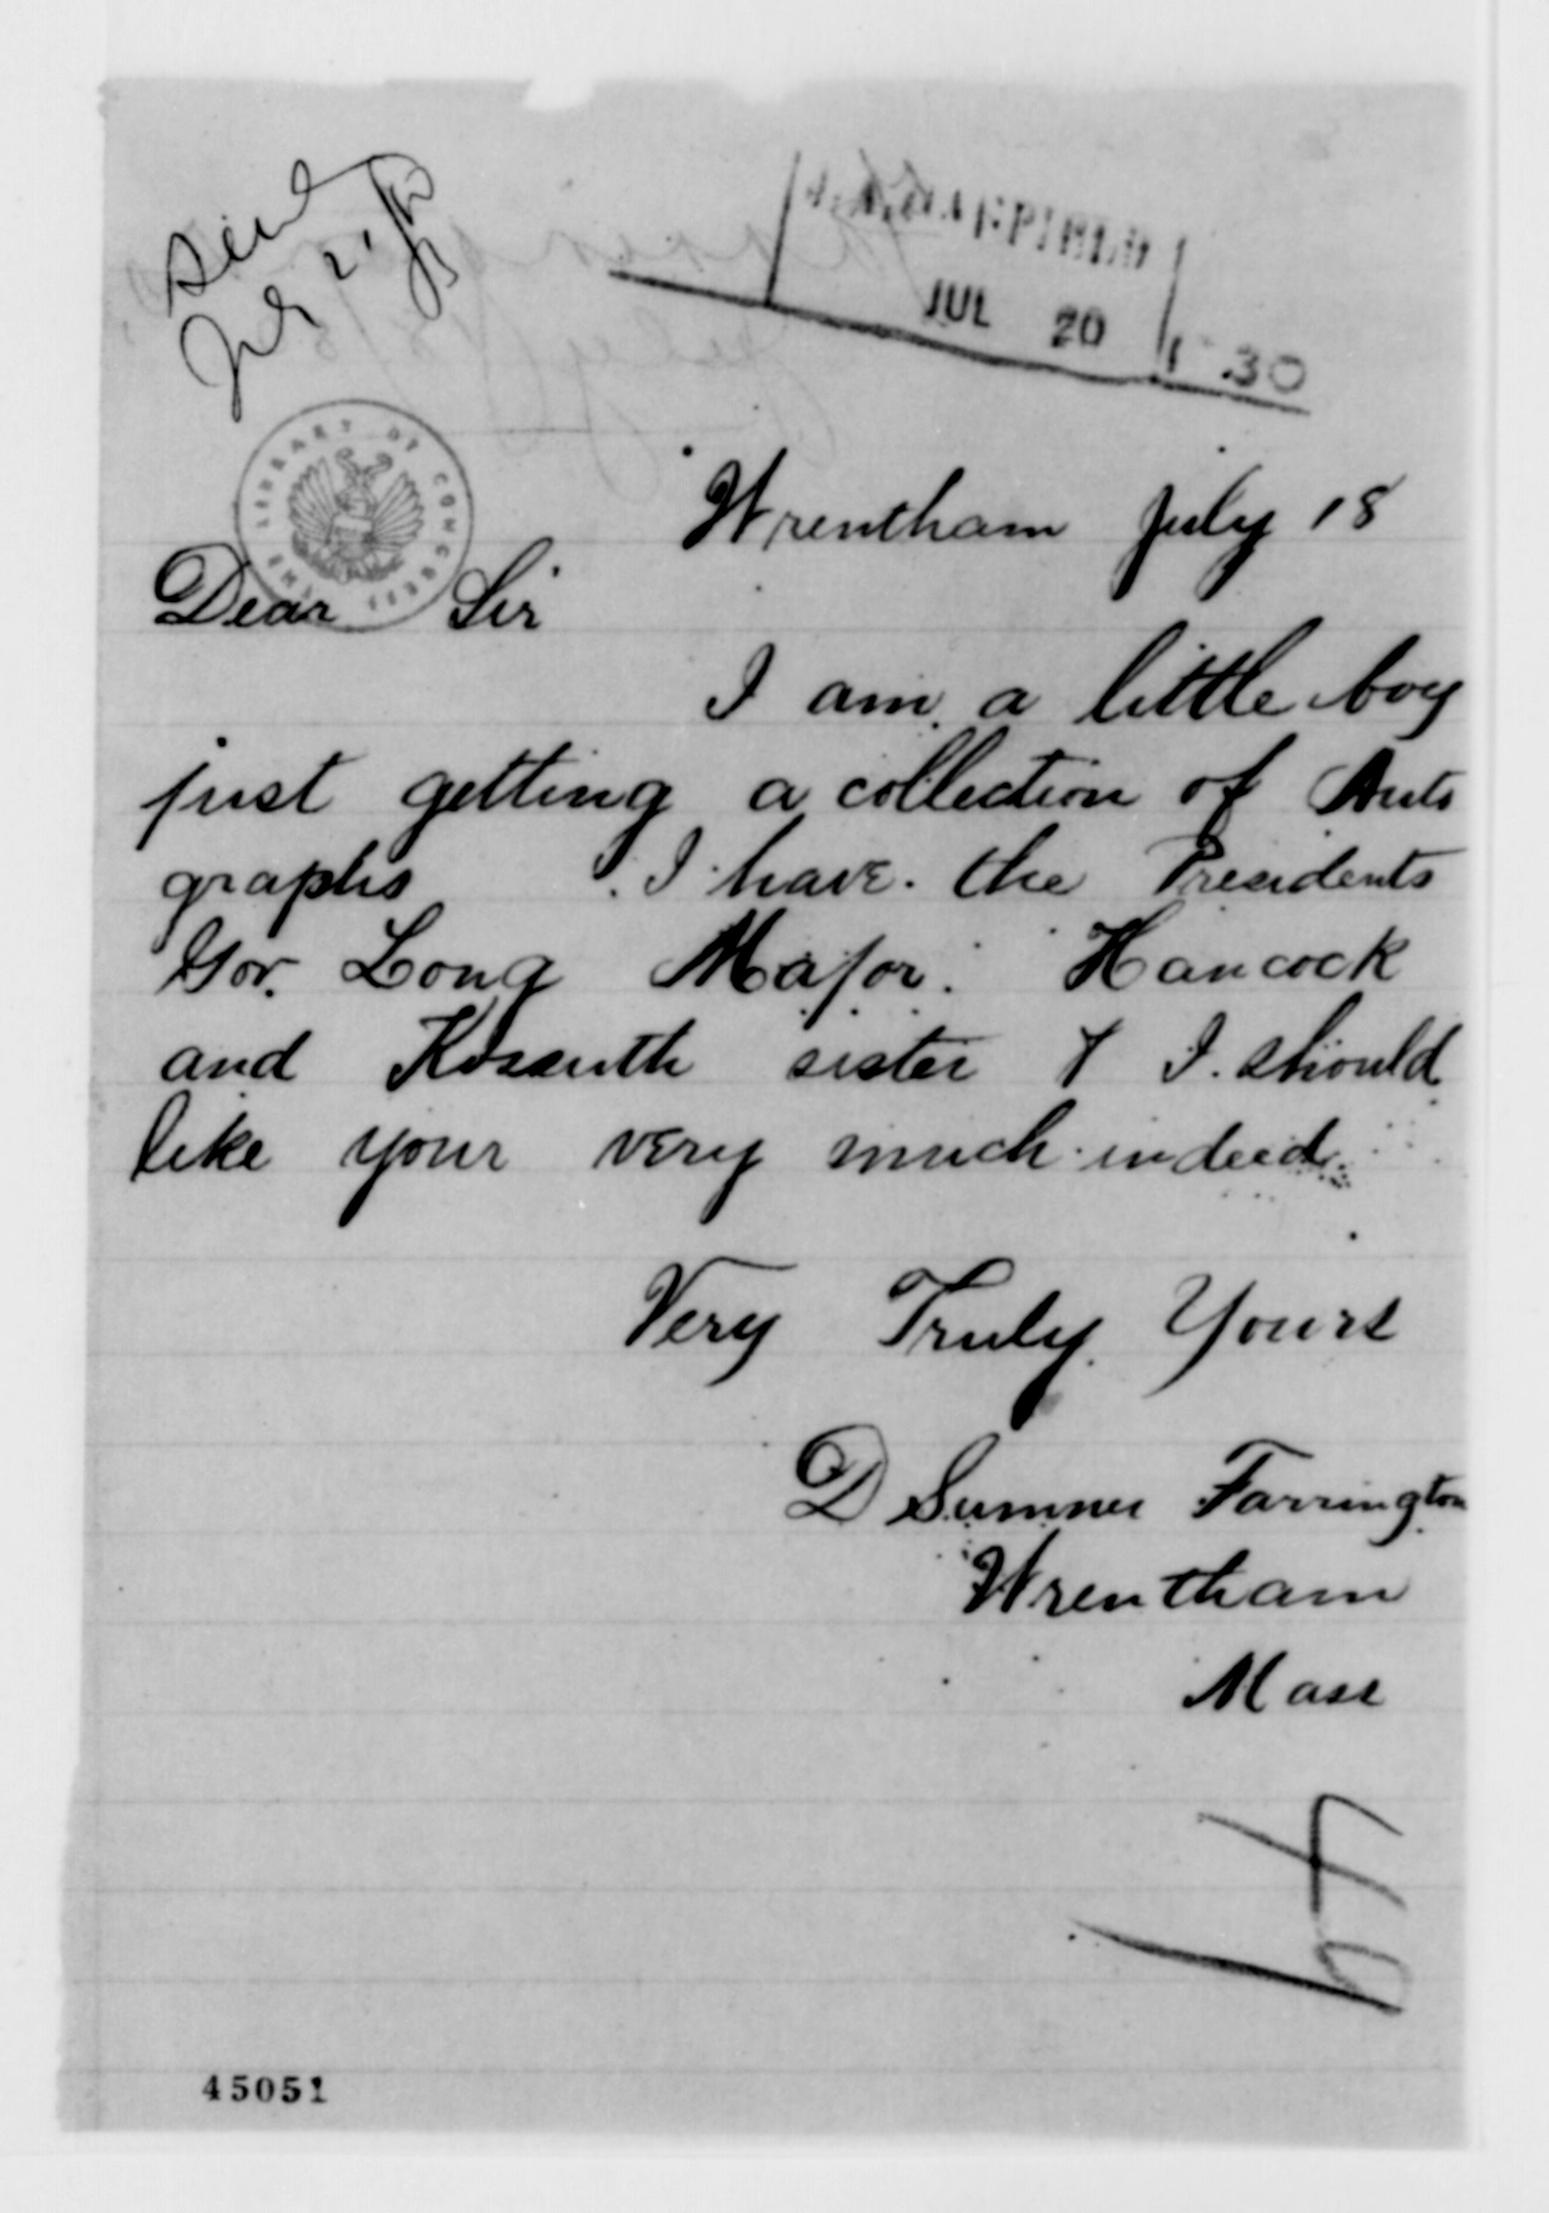 Sent
July 21,
JUL 20 1 30
THE LIBRARY OF CONGRESS
Wrentham July 18
Dear Sir
I am a little boy
just getting a collection of Auto
graphs I have the Presidents
Gov. Long Major. Hancock
and Kossuth sister & I should
like your very much indeed.
Very Truly Yours
D Sumner Farrington
Wrentham
Mass
45051